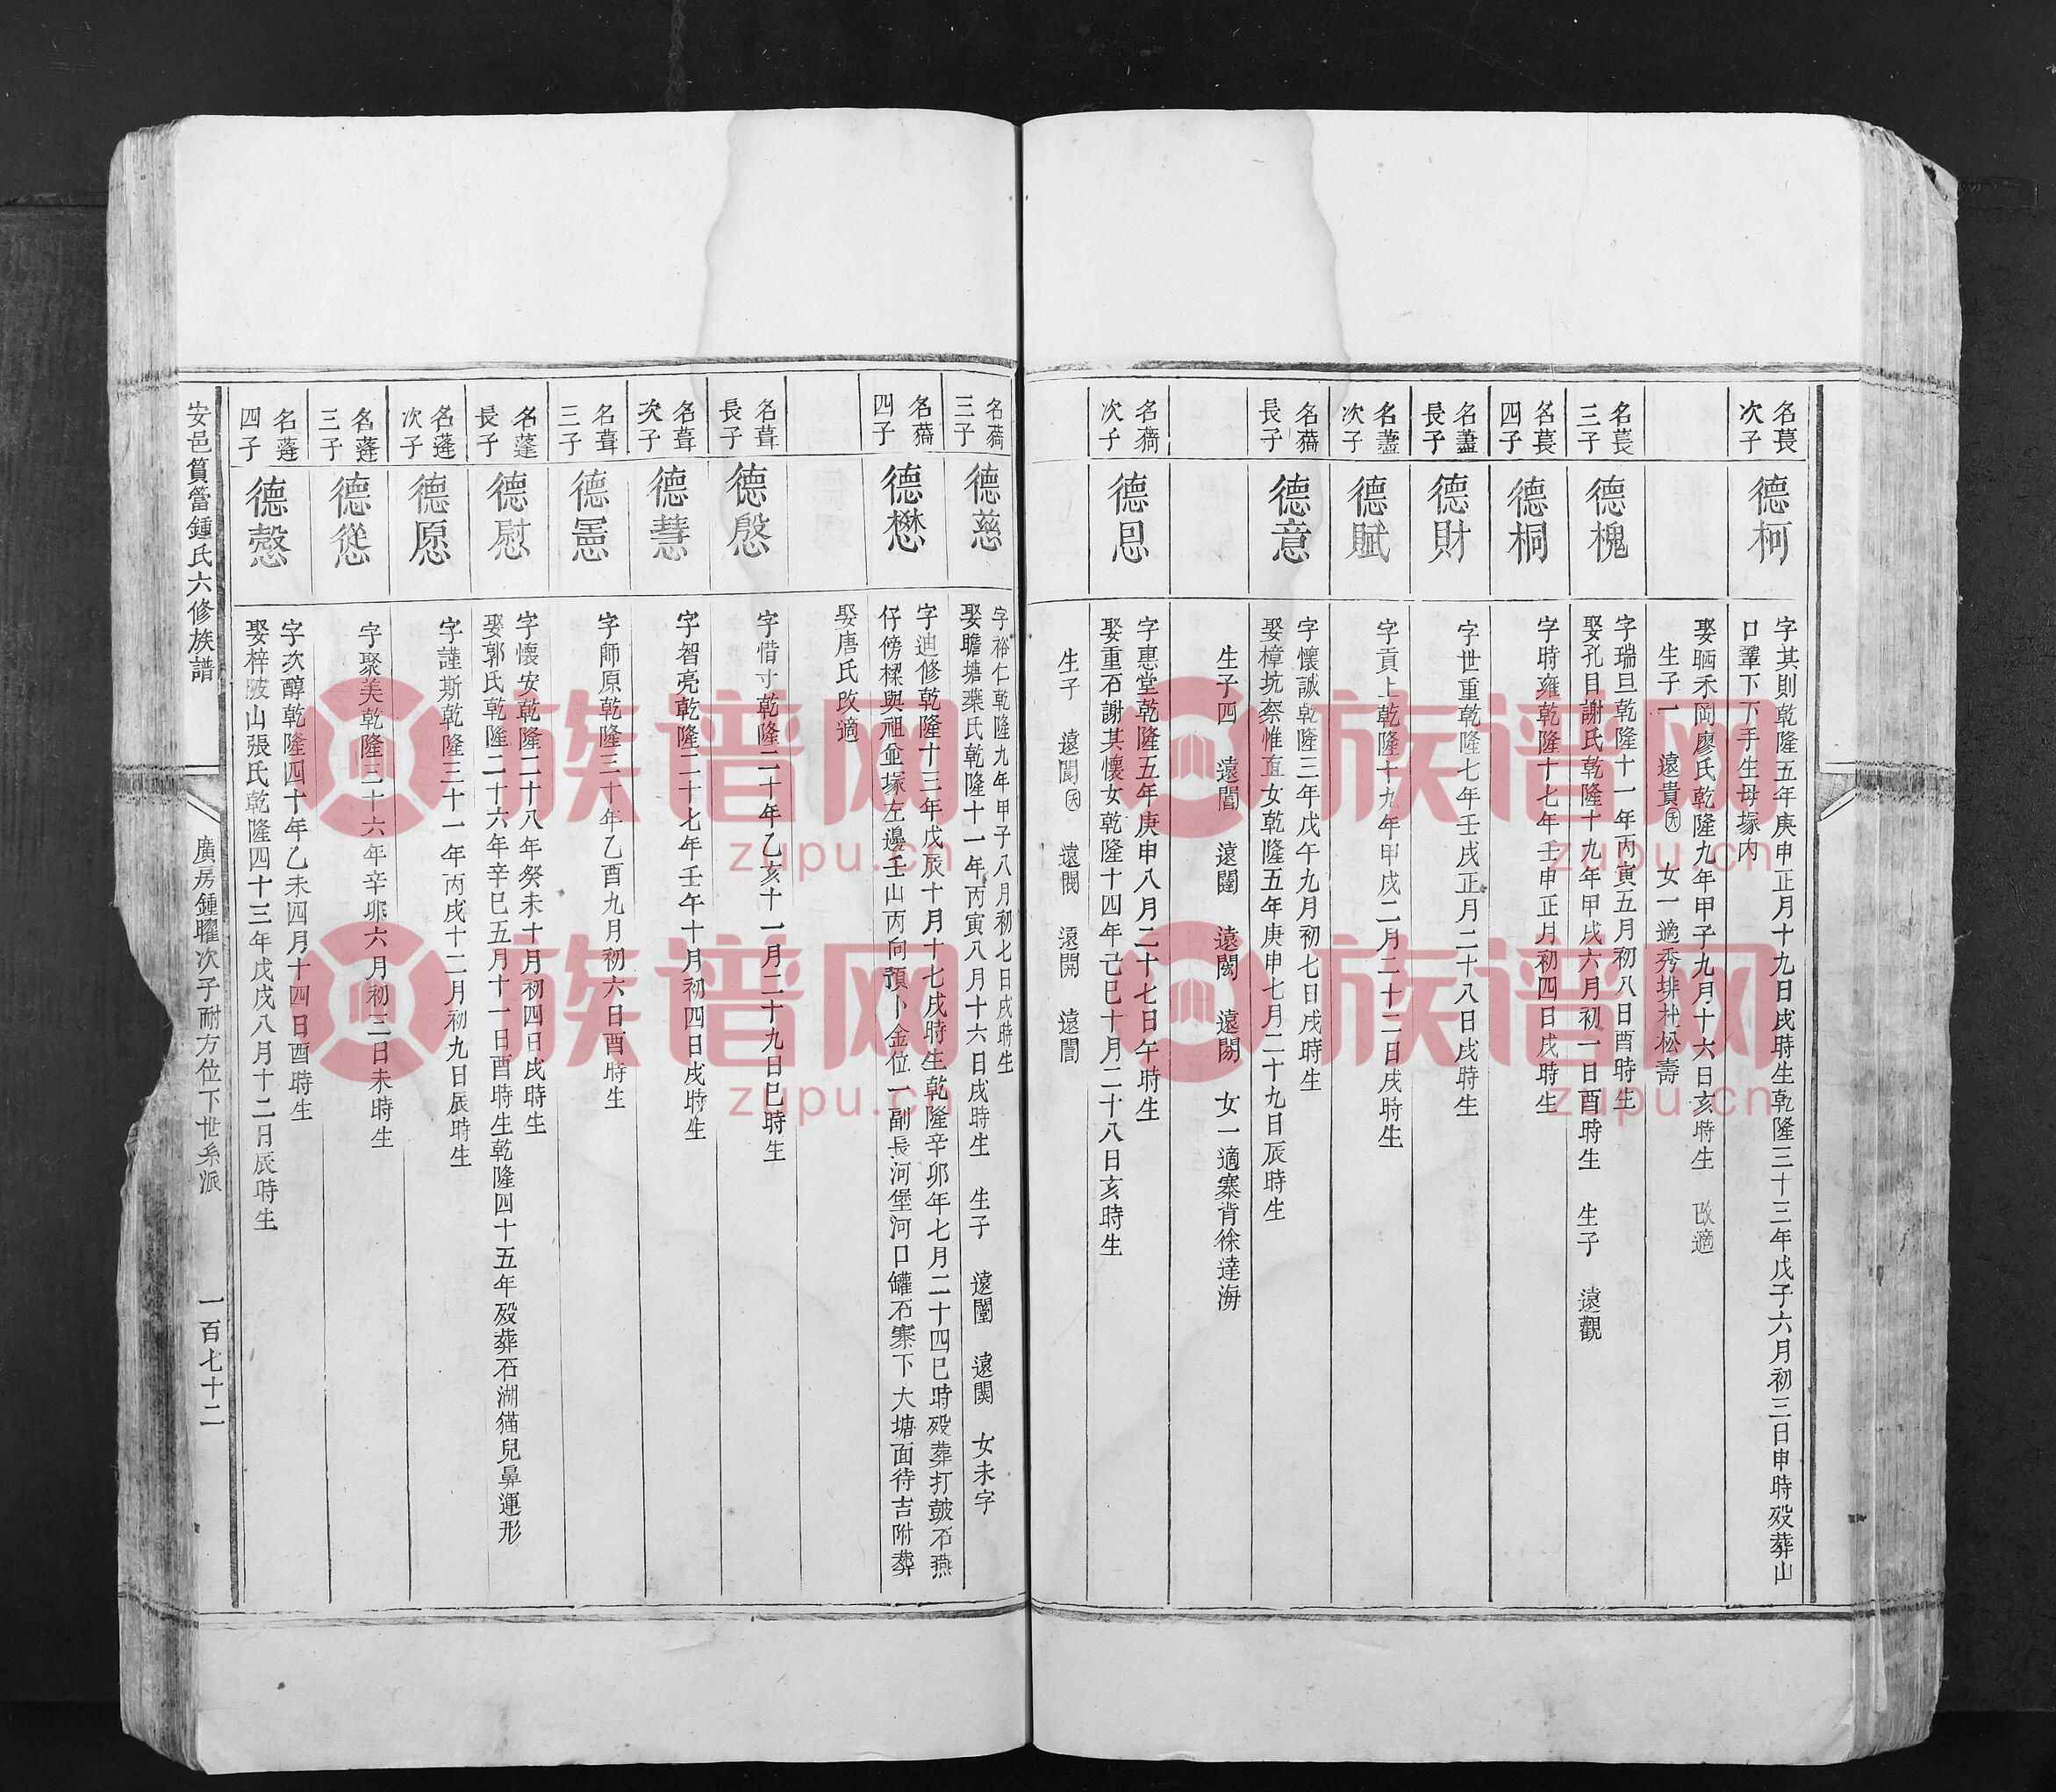 名萇
次子
德柯
字其則乾隆五年庚申正月十九日戌時生乾隆三十三年戊子六月初三日申時殁葬山
口鞏下下手生母塚内
娶晒禾岡廖氏乾隆九年甲子九月十六日亥時生 改適
生子一 遠貴 女一適秀排杜松壽
名萇
三子
德槐
字瑞旦乾隆十一年丙寅五月初八日酉時生
娶孔目謝氏乾隆十九年甲戌六月初一日酉時生 生子 遠觀
名萇
四子
德桐
字時雍乾隆十七年壬申正月初四日戌時生
名藎
長子
德財
字世重乾隆七年壬戌正月二十八日戌時生
名藎
次子
德賦
字貢上乾隆十九年甲戌二月二十二日戌時生
名薌
長子
德意
字懷誠乾隆三年戊午九月初七日戌時生
娶樟坑蔡惟直女乾隆五年庚申七月二十九日辰時生
生子四 遠閶 遠闥 遠閿 遠閍 女一適寨背徐達海
名薌
次子
德恩
字惠堂乾隆五年庚申八月二十七日午時生
娶重石謝其懷女乾隆十四年己巳十月二十八日亥時生
生子 遠閬 遠閥 遠開 遠誾
名薌
三子
德慈
字裕仁乾隆九年甲子八月初七日戌時生
娶瞻塘葉氏乾隆十一年丙寅八月十六日戌時生 生子 遠闓 遠関 女未字
名薌
四子
德懋
字迪修乾隆十三年戊辰十月十七戌時生乾隆辛卯年七月二十四巳時殁葬打皷石燕
仔傍樑與祖並塚左邊壬山丙向預卜金位一副長河堡河口罐石寨下大塘面待吉附葬
娶唐氏改適
名葺
長子
德慇
字惜寸乾隆二十年乙亥十一月二十九日巳時生
名葺
次子
德慧
字智亮乾隆二十七年壬午十月初四日戌時生
名葺
三子
德憲
字師原乾隆三十年乙酉九月初六日酉時生
名蓬
長子
德慰
字懷安乾隆二十八年癸未十月初四日戌時生
娶郭氏乾隆二十六年辛巳五月十一日酉時生乾隆四十五年殁葬石湖猫兒鼻運形
名蓬
次子
德愿
字謹斯乾隆三十一年丙戌十二月初九日辰時生
名蓬
三子
德慫
字聚美乾隆三十六年辛卯六月初二日未時生
名蓬
四子
德慤
字次醇乾隆四十年乙未四月十四日酉時生
娶梓陂山張氏乾隆四十三年戊戌八月十二日辰時生
安邑篔簹鍾氏六修族譜
廣房鍾曜次子耐方位下世系派
一百七十二
族谱网
zupu.cn
族谱网
zupu.cn
族谱网
zupu.cn
族谱网
zupu.cn